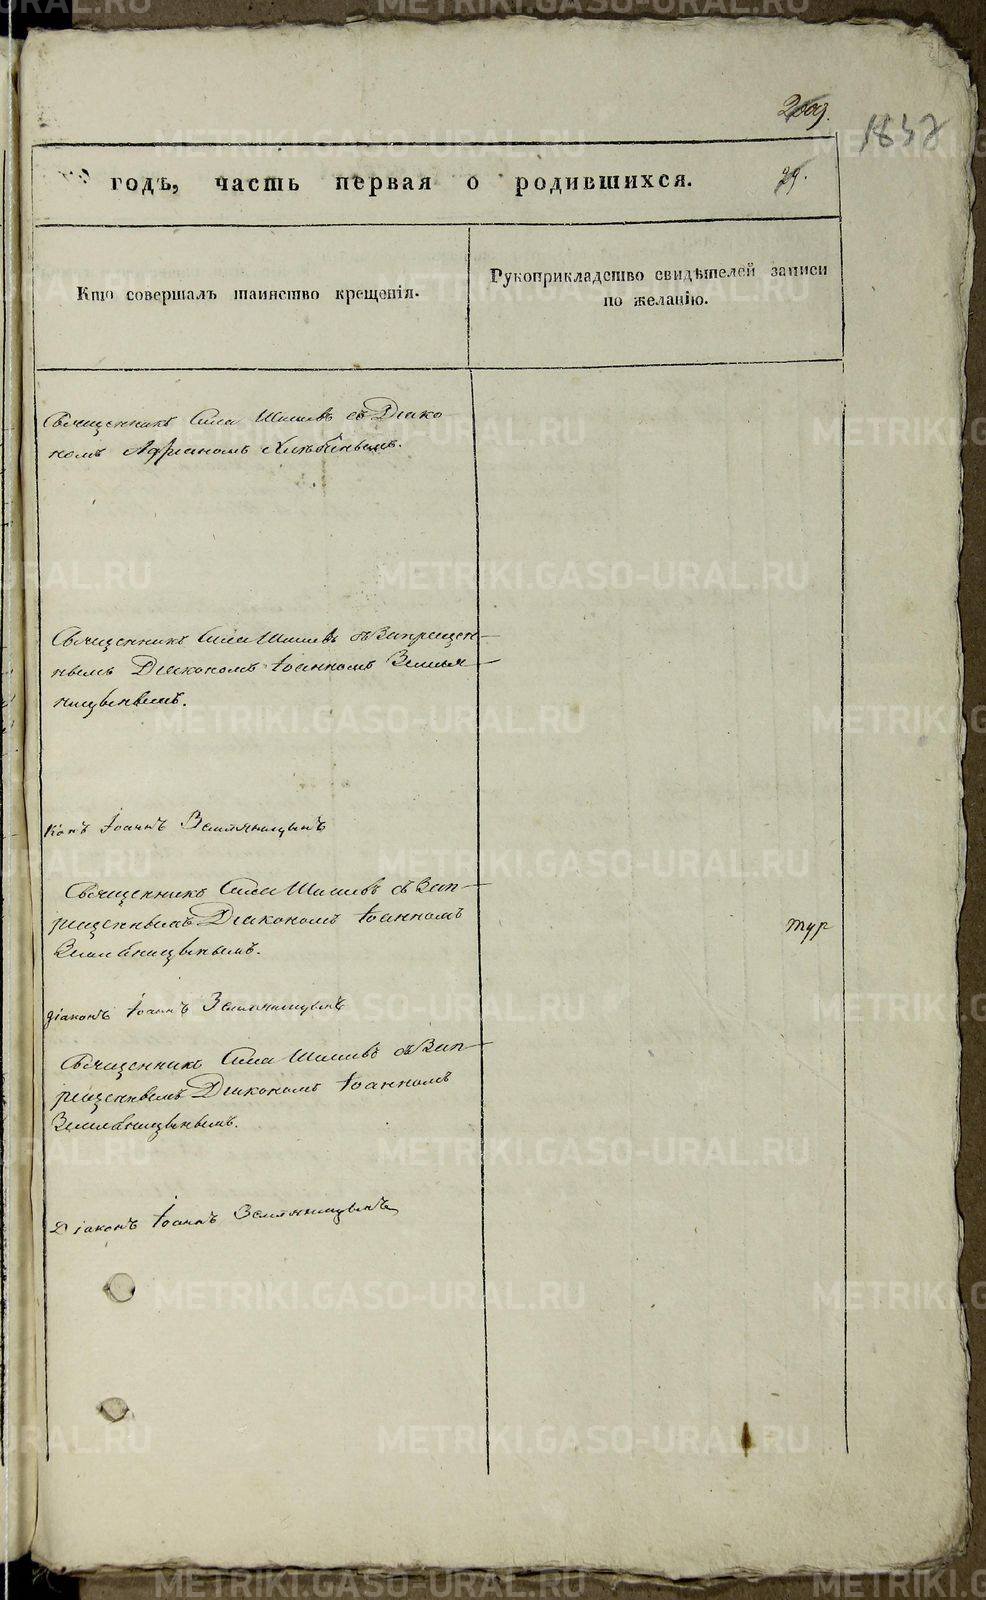 2009.
1838
годъ, часть первая о родившихся.
29.
Кто совершалъ таинство крещенія.
Рукоприкладство свидѣтелей записи
по желанію.
Священникъ Сила Шишевъ съ Діако
номъ Адрианомъ
Священникъ Сила Шишевъ съ Запрещен-
нымъ Диакономъ Іоанномъ Землян-
ницынымъ.
Іоаннъ Земляницынъ
Священникъ Сила Шишевъ съ Зап-
рещеннымъ Диакономъ Іоанномъ
Земляницынымъ.
тур
діаконъ Іоаннъ Земляницынъ
Священникъ Сила Шишевъ съ Зап-
рещеннымъ Диакономъ Іоанномъ
Земляницынымъ.
Діаконъ Іоаннъ Земляницынъ
METRIKI.GASO-URAL.RU